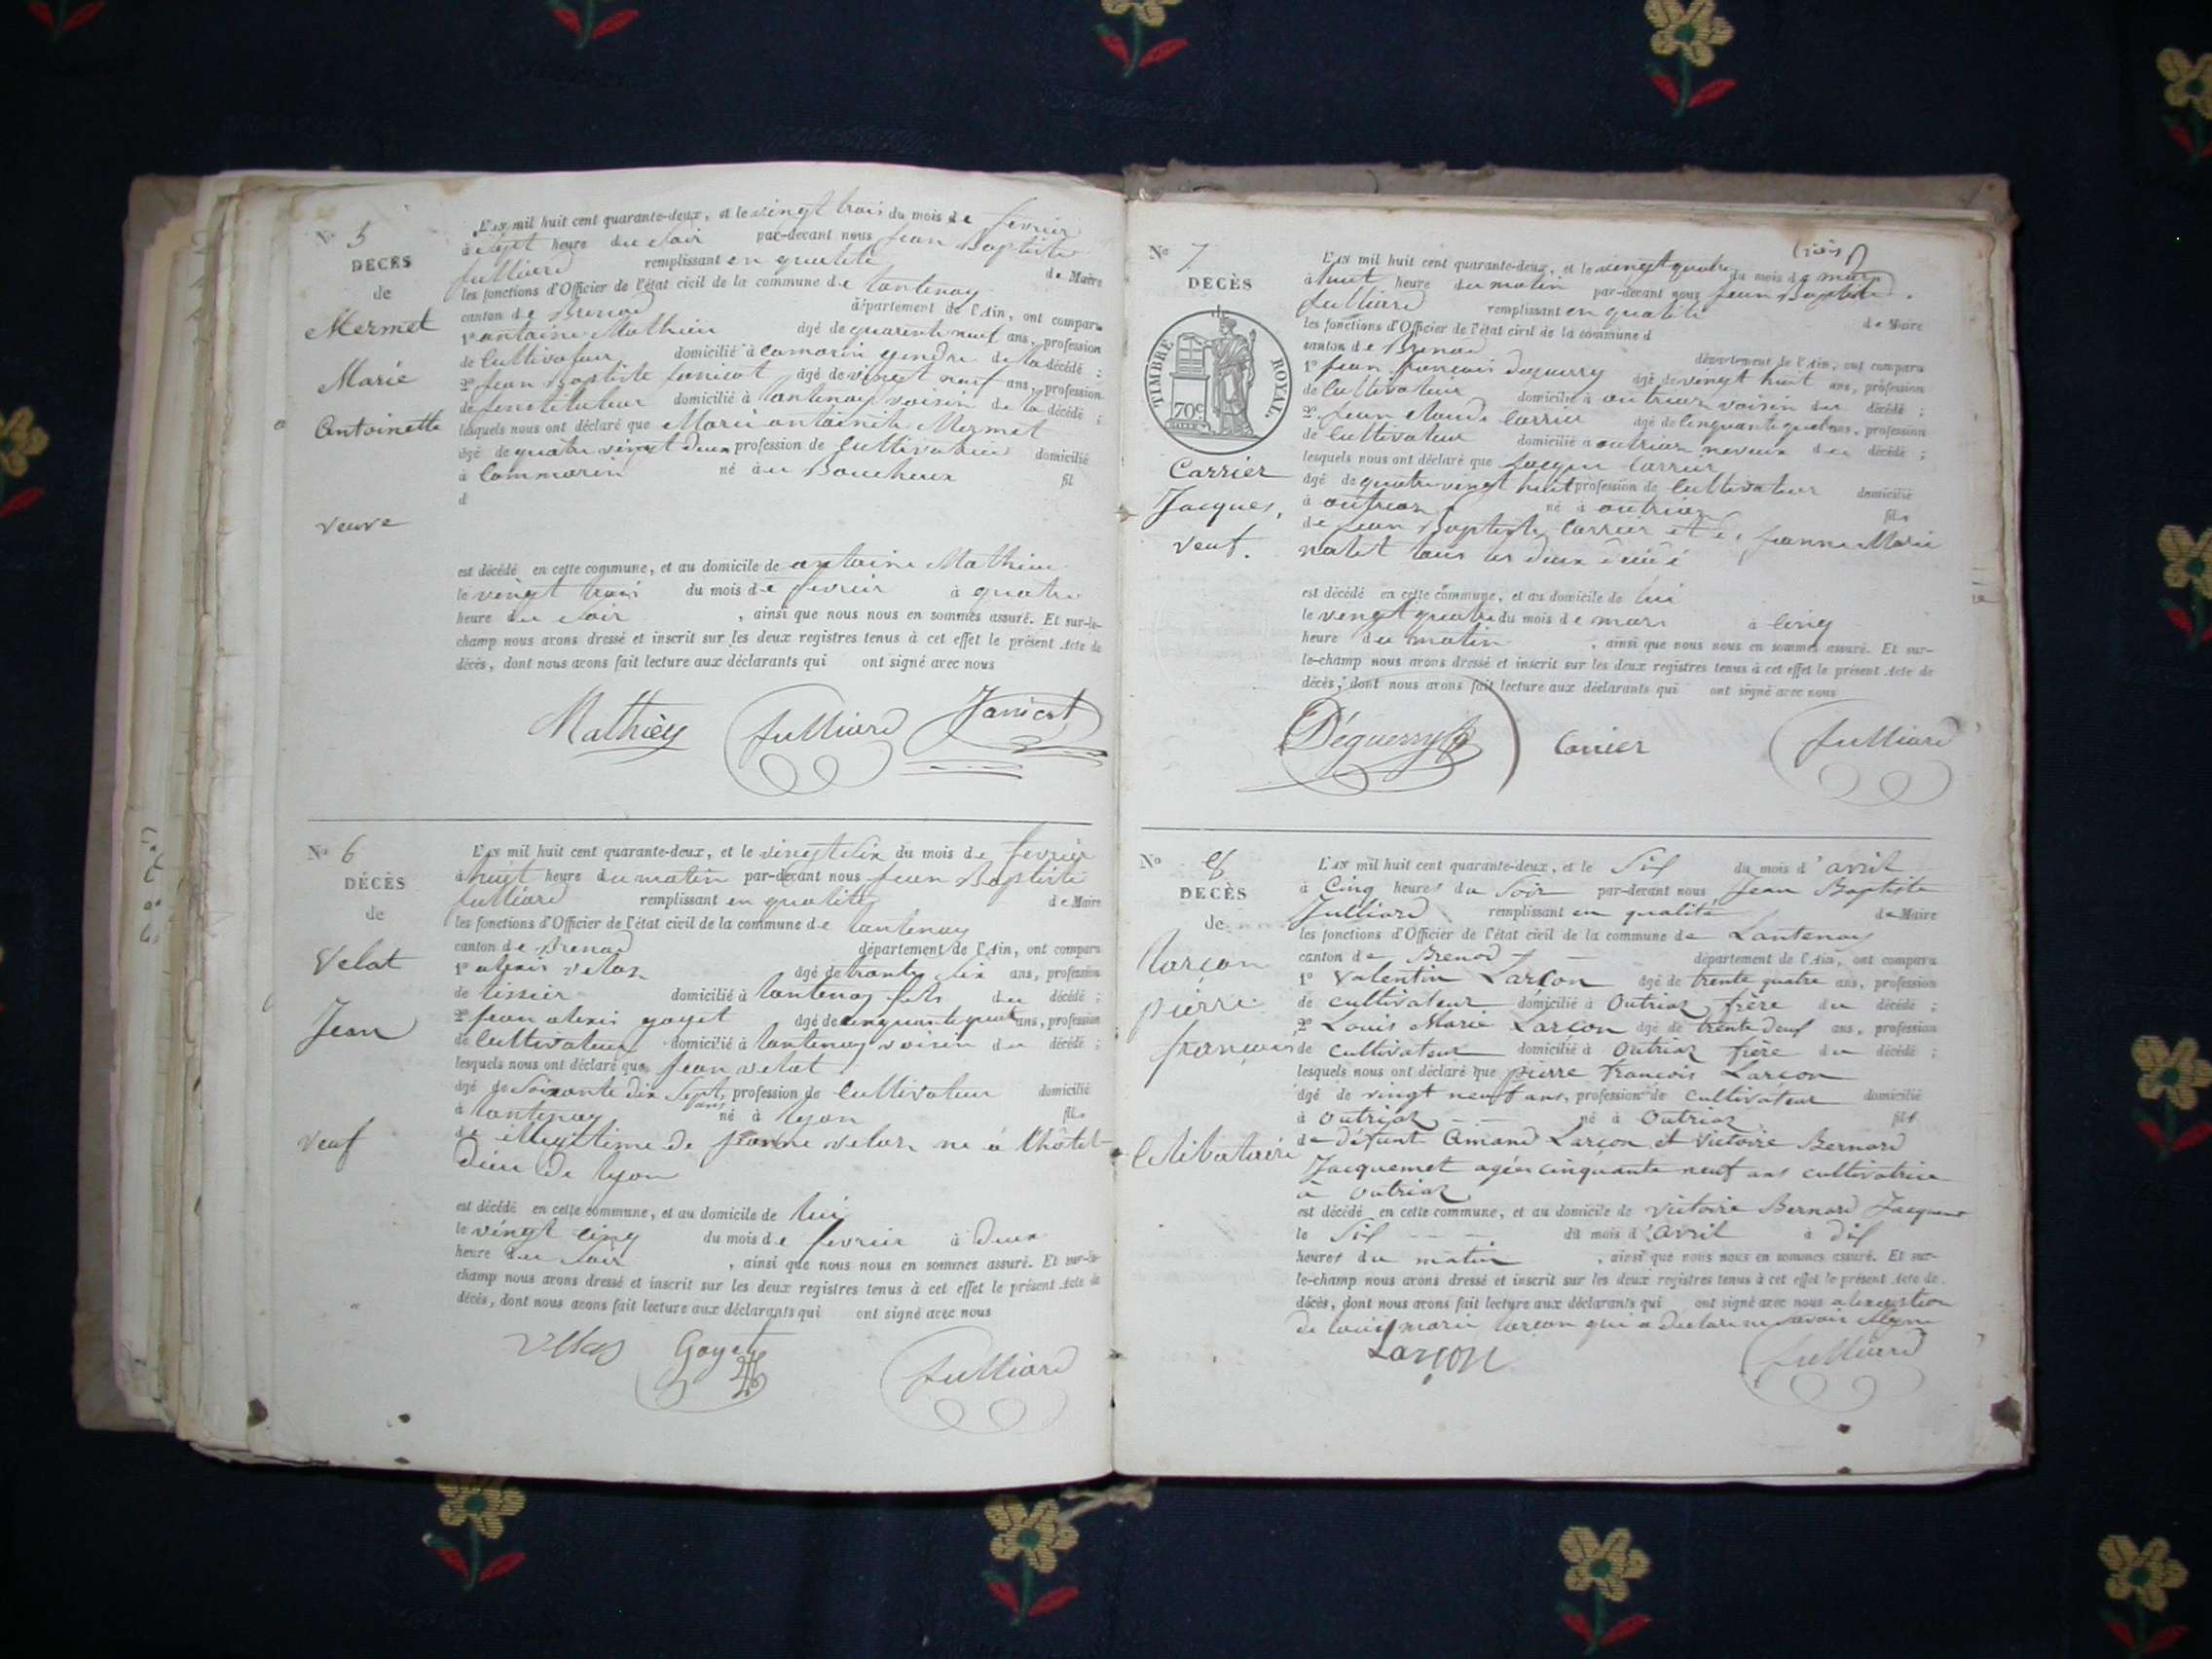 N° 5
DECÈS
de
Mermet
Marie
Antoinette
veuve
L'AN mil huit cent quarante-deux, et le vingt trois du mois de fevrier
à sept heure du soir par-devant nous jean Baptiste
julliard remplissant en qualité de Maire
les fonctions d'Officier de l'état civil de la commune de Lantenay
canton de Brenod département de l'Ain, ont comparu
1° antoine Mathieu âgé de quarente neuf ans, profession
de Cultivateur domicilié à Comorin gendre de la décédé ;
2° jean Baptiste janicot âgé de vingt neuf ans, profession
de instituteur domicilié à Lantenay voisin de la décédé ;
lesquels nous ont déclaré que Marie antoinete Mermet
âgé de quatre vingt deux profession de Cultivatrice domicilié
à Commorin né à au Boucheux fil
d
est décédé en cette commune, et au domicile de antoine Mathieu
le vingt trois du mois de fevrier à quatre
heure du soir , ainsi que nous nous en sommes assuré. Et sur-le-
champ nous avons dressé et inscrit sur les deux registres tenus à cet effet le présent Acte de
décès, dont nous avons fait lecture aux déclarants qui ont signé avec nous
Mathieu julliard Janicot
N° 6
DÉCÈS
de
Velat
Jean
veuf
L'AN mil huit cent quarante-deux, et le vingt six du mois de fevrier
à huit heure du matin par-devant nous jean Baptiste
julliard remplissant en qualité de Maire
les fonctions d'Officier de l'état civil de la commune de Lantenay
canton de Brenod département de l'Ain, ont comparu
1° alexis velas âgé de trante six ans, profession
de tissier domicilié à Lantenay fils du décédé ;
2° jean alexis goyet âgé de cinquante quat ans, profession
de Cultivateur domicilié à Lantenay voisin du décédé ;
lesquels nous ont déclaré que jean velat
âgé de soixante dix sept ans profession de Cultivateur domicilié
à Lantenay né à lyon fils
de illegitime de jeanne velas ne à l'hôtel
Dieu de lyon
est décédé en cette commune, et au domicile de lui
le vingt cinq du mois de fevrier à deux
heure du soir , ainsi que nous nous en sommes assuré. Et sur-le-
champ nous avons dressé et inscrit sur les deux registres tenus à cet effet le présent Acte de
décès, dont nous avons fait lecture aux déclarants qui ont signé avec nous
Velas Goyet julliard
N° 7
DECÈS
TIMBRE ROYAL
70c
Carrier
Jacques,
veuf.
L'AN mil huit cent quarante-deux, et le vingt quatre du mois de mars
à huit heure du matin par-devant nous jean Baptiste
julliard remplissant en qualité de Maire
les fonctions d'Officier de l'état civil de la commune d
canton de Brenod département de l'Ain, ont comparu
1° jean françois deguerry âgé de vingt huit ans, profession
de Cultivateur domicilié à outriaz voisin du décédé ;
2° jean claude Carrier âgé de cinquante quat ans, profession
de Cultivateur domicilié à outriaz neveux du décédé ;
lesquels nous ont déclaré que jacque Carrier
âgé de quatre vingt huit profession de Cultivateur domicilié
à outriaz né à outriaz fils
de jean Baptiste Carrier et de jeanne Marie
nalet tous les deux
est décédé en cette commune, et au domicile de lui
le vingt quatre du mois de mars à cinq
heure du matin , ainsi que nous nous en sommes assuré. Et sur-
le-champ nous avons dressé et inscrit sur les deux registres tenus à cet effet le présent Acte de
décès, dont nous avons fait lecture aux déclarants qui ont signé avec nous
Déguerry Carrier julliard
N° 8
DECÈS
de
Larçon
pierre
françois
Célibataire
L'AN mil huit cent quarante-deux, et le Six du mois d'avril
à Cinq heures du Soir par-devant nous Jean Baptiste
Julliard remplissant en qualité de Maire
les fonctions d'Officier de l'état civil de la commune de Lantenay
canton de Brenod département de l'Ain, ont comparu
1° Valentin Larçon âgé de trente quatre ans, profession
de cultivateur domicilié à Outriaz frère du décédé ;
2° Louis Marie Larçon âgé de trente deux ans, profession
de cultivateur domicilié à Outriaz frère du décédé ;
lesquels nous ont déclaré que pierre françois Larçon
âgé de vingt neuf ans, profession de cultivateur domicilié
à Outriaz né à Outriaz fils
de défunt Amand Larçon et Victoire Bernard
Jacquemet agée cinquante neuf ans cultivatrice
à Outriaz
est décédé en cette commune, et au domicile de Victoire Bernard Jacquemet
le Six du mois d'avril à dix
heures du matin , ainsi que nous nous en sommes assuré. Et sur-
le-champ nous avons dressé et inscrit sur les deux registres tenus à cet effet le présent Acte de
décès, dont nous avons fait lecture aux déclarants qui ont signé avec nous a lexception
de louis marie larçon qui a declare ne savoir signe
Larçon julliard